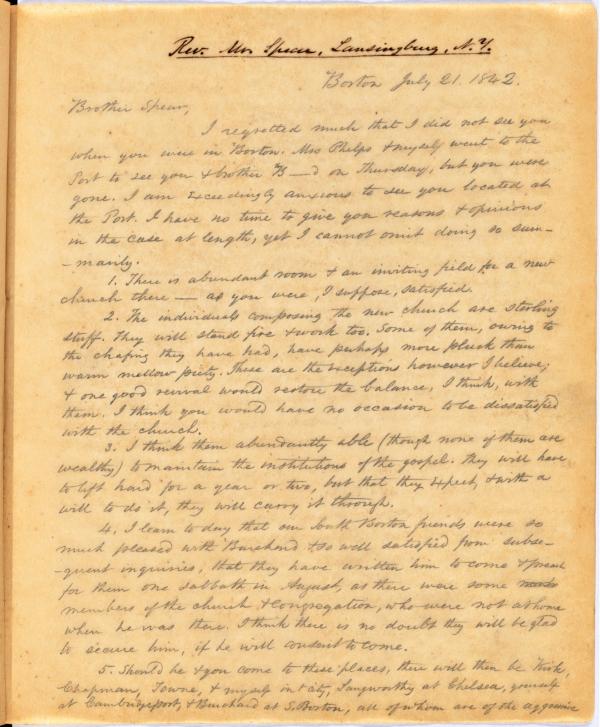 Rev. Mr Spear, Lansingburg, N.Y.
Boston July 21. 1842.
Brother Spear,
I regretted much that I did not see you
when you were in Boston. Mrs Phelps & myself went to the
Port to see you & brother B—d on Thursday, but you were
gone. I am exceedingly anxious to see you located at
the Port. I have no time to give you reasons & opinions
in the case at length, yet I cannot omit doing so sum-
-marily.
1. There is abundant room & an inviting field for a new
church there — as you were, I suppose, satisfied.
2. The individuals composing the new church are sterling
stuff. They will stand fire & work too. Some of them, owing to
the chafing they have had, have perhaps more pluck than
warm mellow piety. These are the exceptions however I believe;
& one good revival would restore the balance, I think, with
them. I think you would have no occasion to be dissatisfied
with the church.
3. I think them abundantly able (though none of them are
wealthy) to maintain the institutions of the gospel. They will have
to lift hard for a year or two, but that they expect, & with a
will to do it, they will carry it through.
4. I learn to day that our South Boston friends were so
much pleased with Burchard & so well satisfied from subse-
-quent inquiries, that they have written him to come & preach
for them one sabbath in August, as there were some
members of the church & Congregation, who were not at home
when he was there. I think there is no doubt they will be glad
to secure him, if he will consent to come.
5. Should he & you come to these places, there will then be Kirk,
Chapman, Towne, & myself in city, Langworthy at Chelsea, yourself
at Cambridgeport, & Burchard at S. Boston, all of whom are of the aggressive